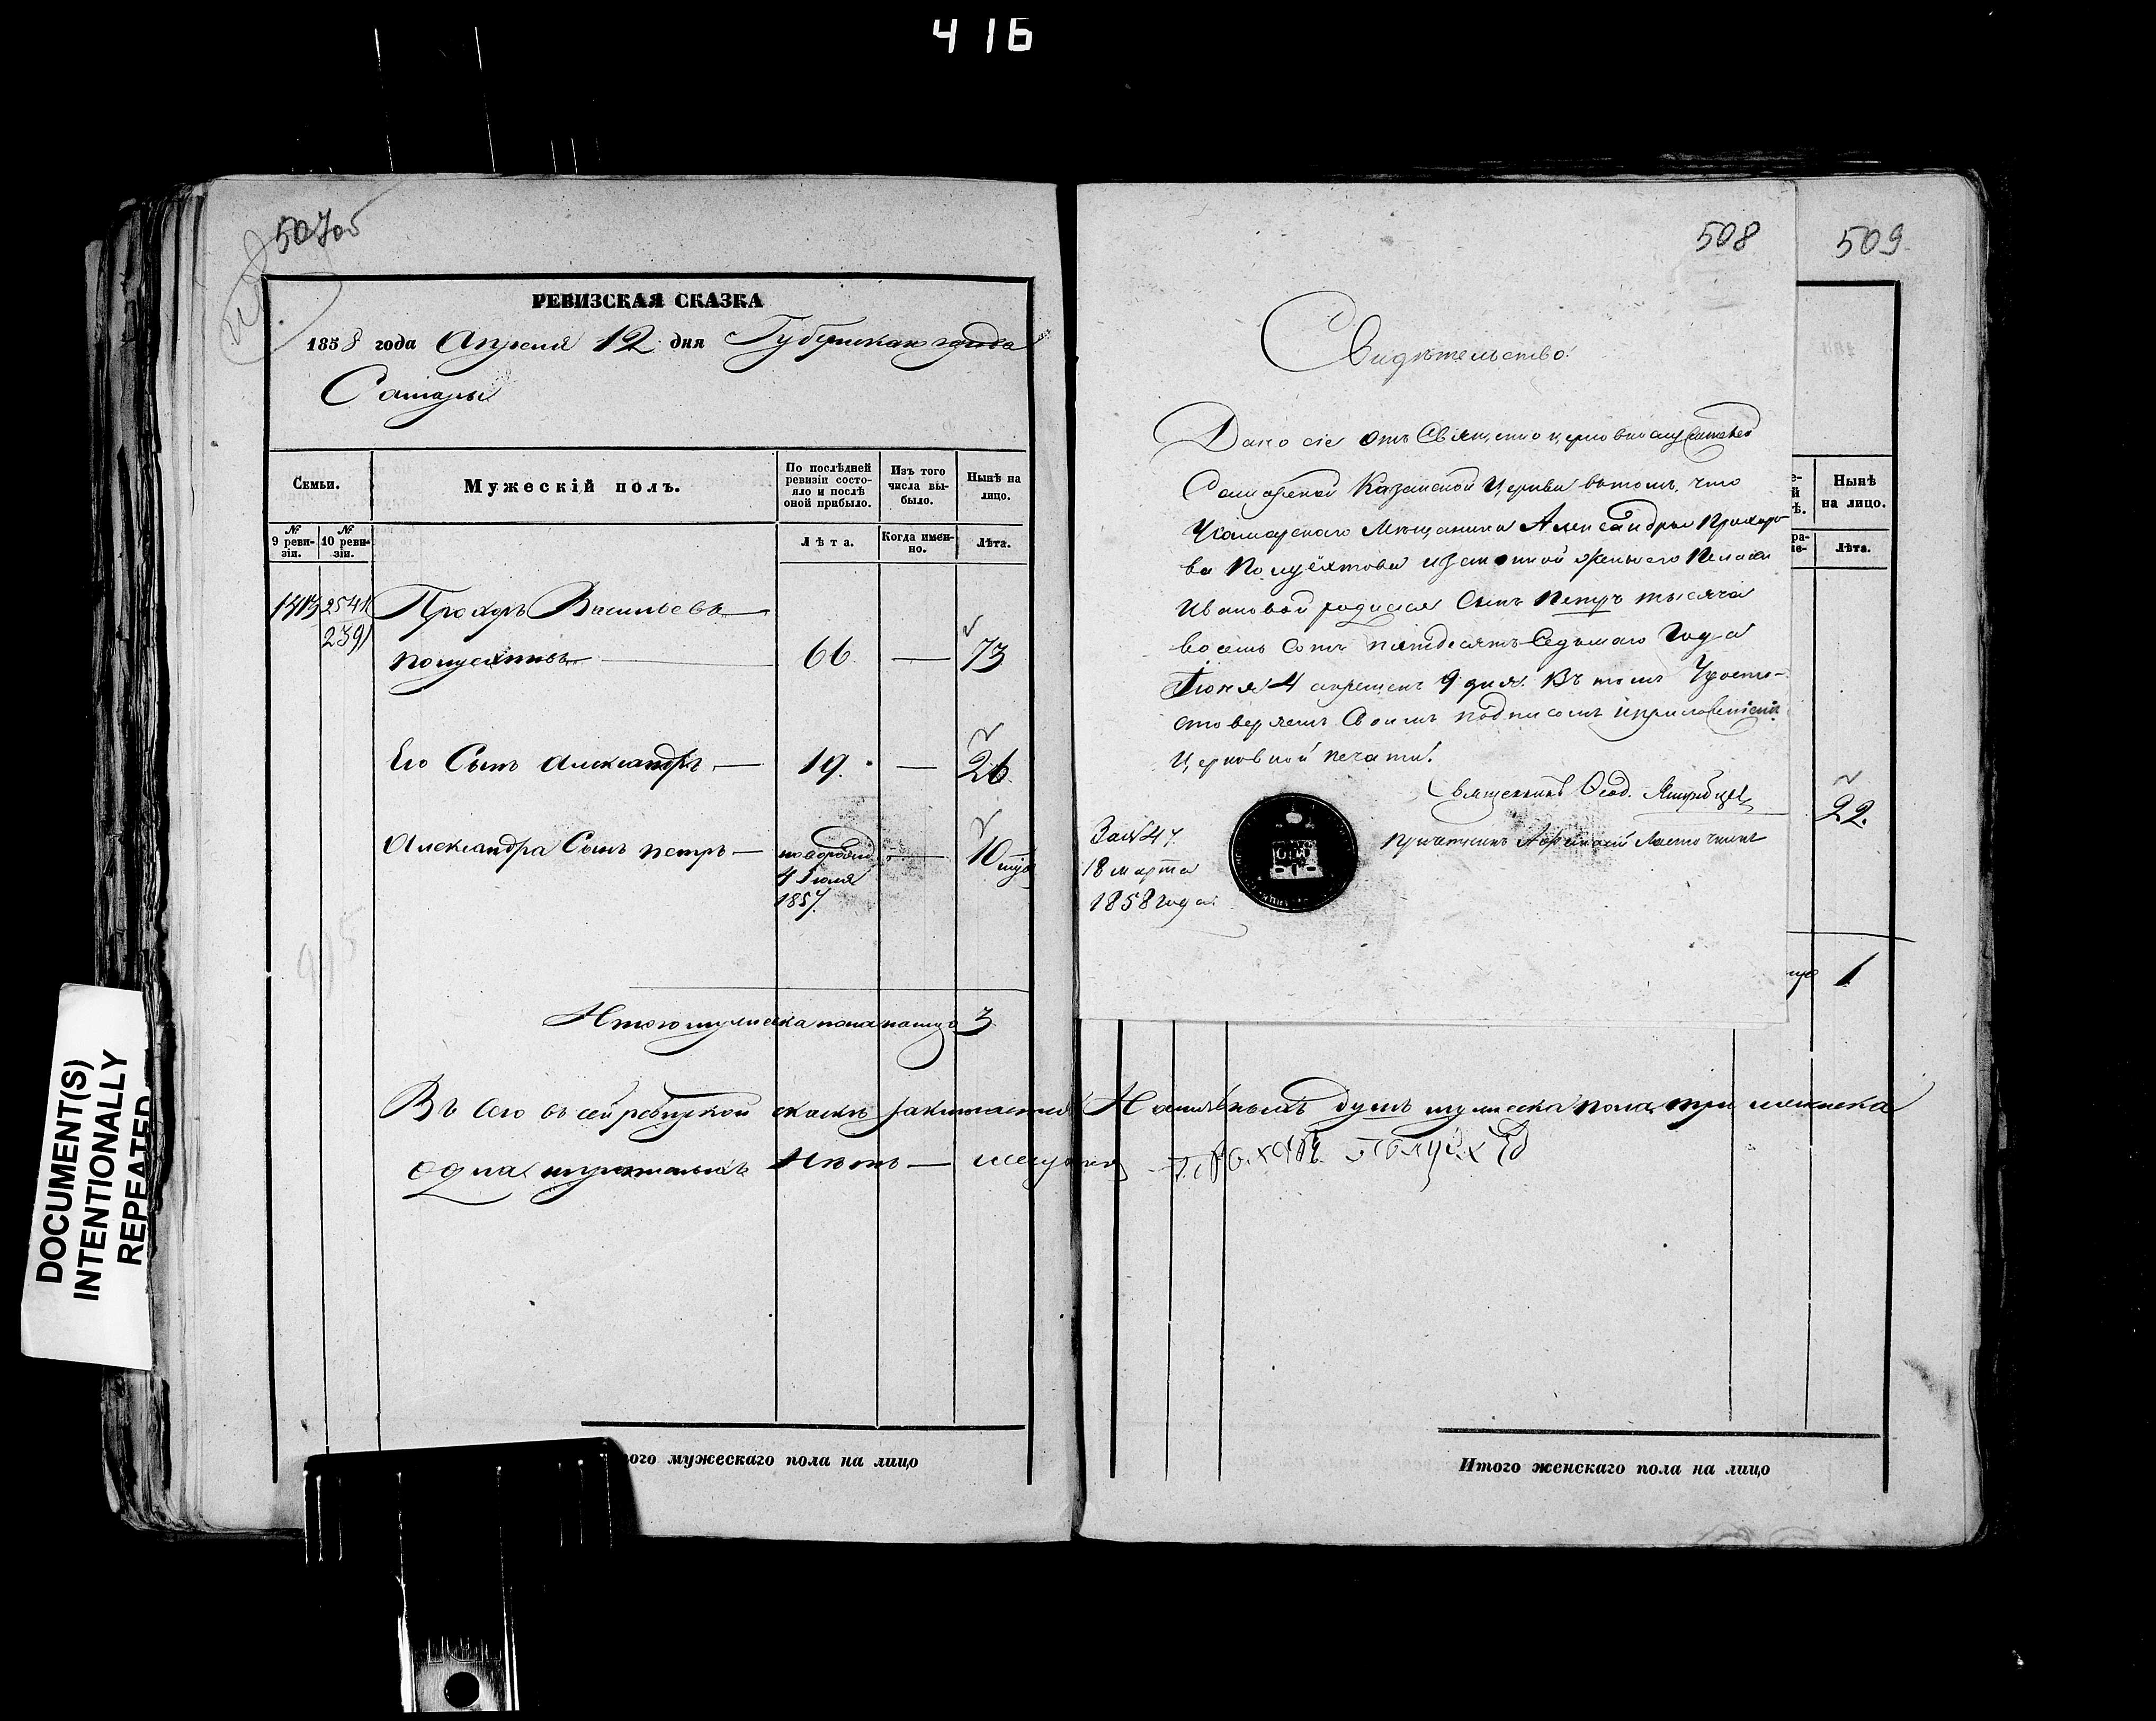 416
507об
РЕВИЗСКАЯ СКАЗКА
1858 года Апреля 12 дня Губернскаго города
Самары
Семьи.
Мужескій полъ.
По послѣдней ревизіи состояло и послѣ оной прибыло.
Изъ того числа выбыло.
Нынѣ на лицо.
№ 9 ревизіи.
№ 10 ревизіи.
Лѣта.
Когда именно.
Лѣта.
2541 Прохоръ Васильевъ
2391
Полуехтовъ 66 73
Его Сынъ Александръ 19. 26
Александра Сынъ петръ 10
4 Іюля
1857
Итого мужеска пола на лицо 3
Въ сего въ сей ревизкой скаскѣ заключается Наличныхъ душъ мужеска пола три женска
одна нѣтъ
DOCUMENT(S)
INTENTIONALLY
REPEATED
ого мужескаго пола на лицо
508
Свидѣтельство
Дано сіе отъ Священно церковнослужителей
Самарской Казанской Церкви въ томъ, что
У Самарскаго Мѣщанина Александра Прохоро
ва Полуёхтова изаконной жены его Пелагеи
Ивановой родился Сынъ Петръ тысяча
восемь сотъ пятдесятъ Седьмаго Года
4 окрещенъ 9 дня. Въ томъ
Своимъ подписомъ
Церковной печати.
Священникъ
За №47.
18 марта
1858 года
509
Нынѣ на лицо.
Лѣта.
22.
1
Итого женскаго пола на лицо